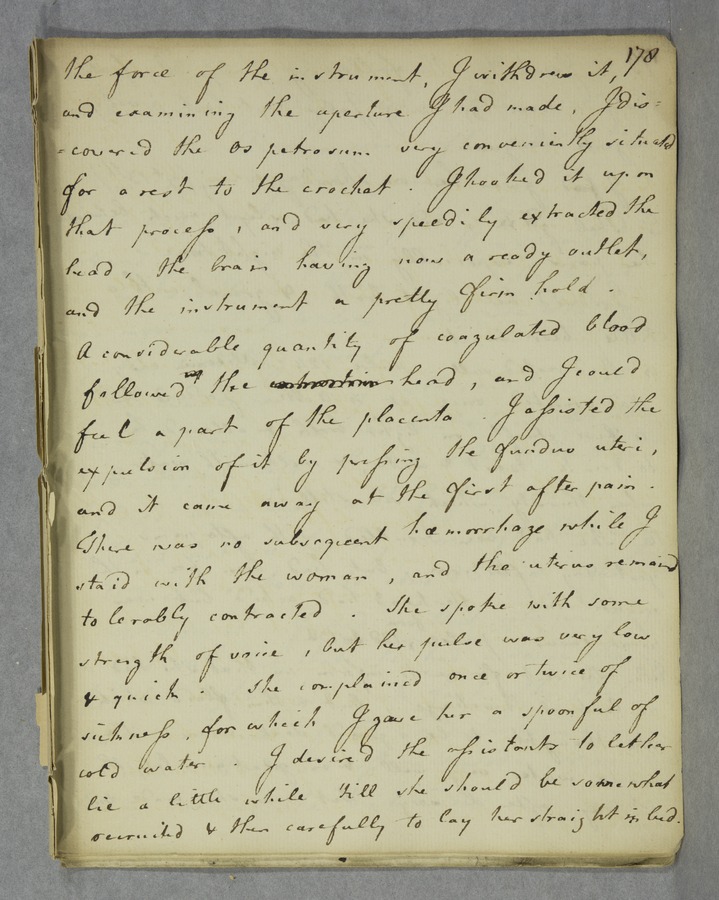 178
the force of the instrument, I withdrew it,
and examining the aperture I had made, I dis=
=covered the os petrosum very conveniently situated
for a rest to the crochat. I hooked it upon
that process, and very speedily extracted the
head, the brain having now a ready outlet,
and the instrument a pretty firm hold.
A considerable quantity of coagulated blood
followed the head, and I could
feel a part of the placenta. I assisted the
expulsion of it by pressing the fundus uteri,
and it came away at the first after pain.
There was no subsequent hæmorrhage while I
staid with the woman, and the uterus remained
tolerably contracted. She spoke with some
strength of voice, but her pulse was very low
& quick. She complained once or twice of
sickness, for which I gave her a spoonful of
cold water. I desired the assistants to let her
lie a little while till she should be somewhat
recruited & then carefully to lay her straight in bed.